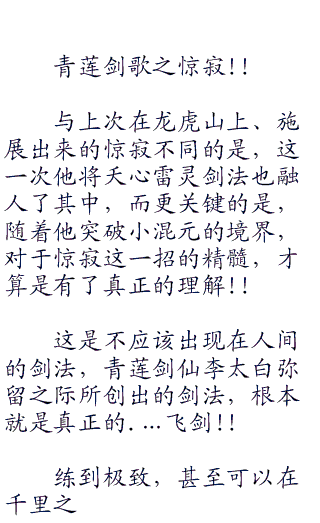 青莲剑歌之惊寂!!
与上次在龙虎山上、施
展出来的惊寂不同的是，这
一次他将天心雷灵剑法也融
人了其中，而更关键的是，
随着他突破小混元的境界，
对于惊寂这一招的精髓，才
算是有了真正的理解!!
这是不应该出现在人间
的剑法，青莲剑仙李太白弥
留之际所创出的剑法，根本
就是真正的....飞剑!!
练到极致，甚至可以在
千里之